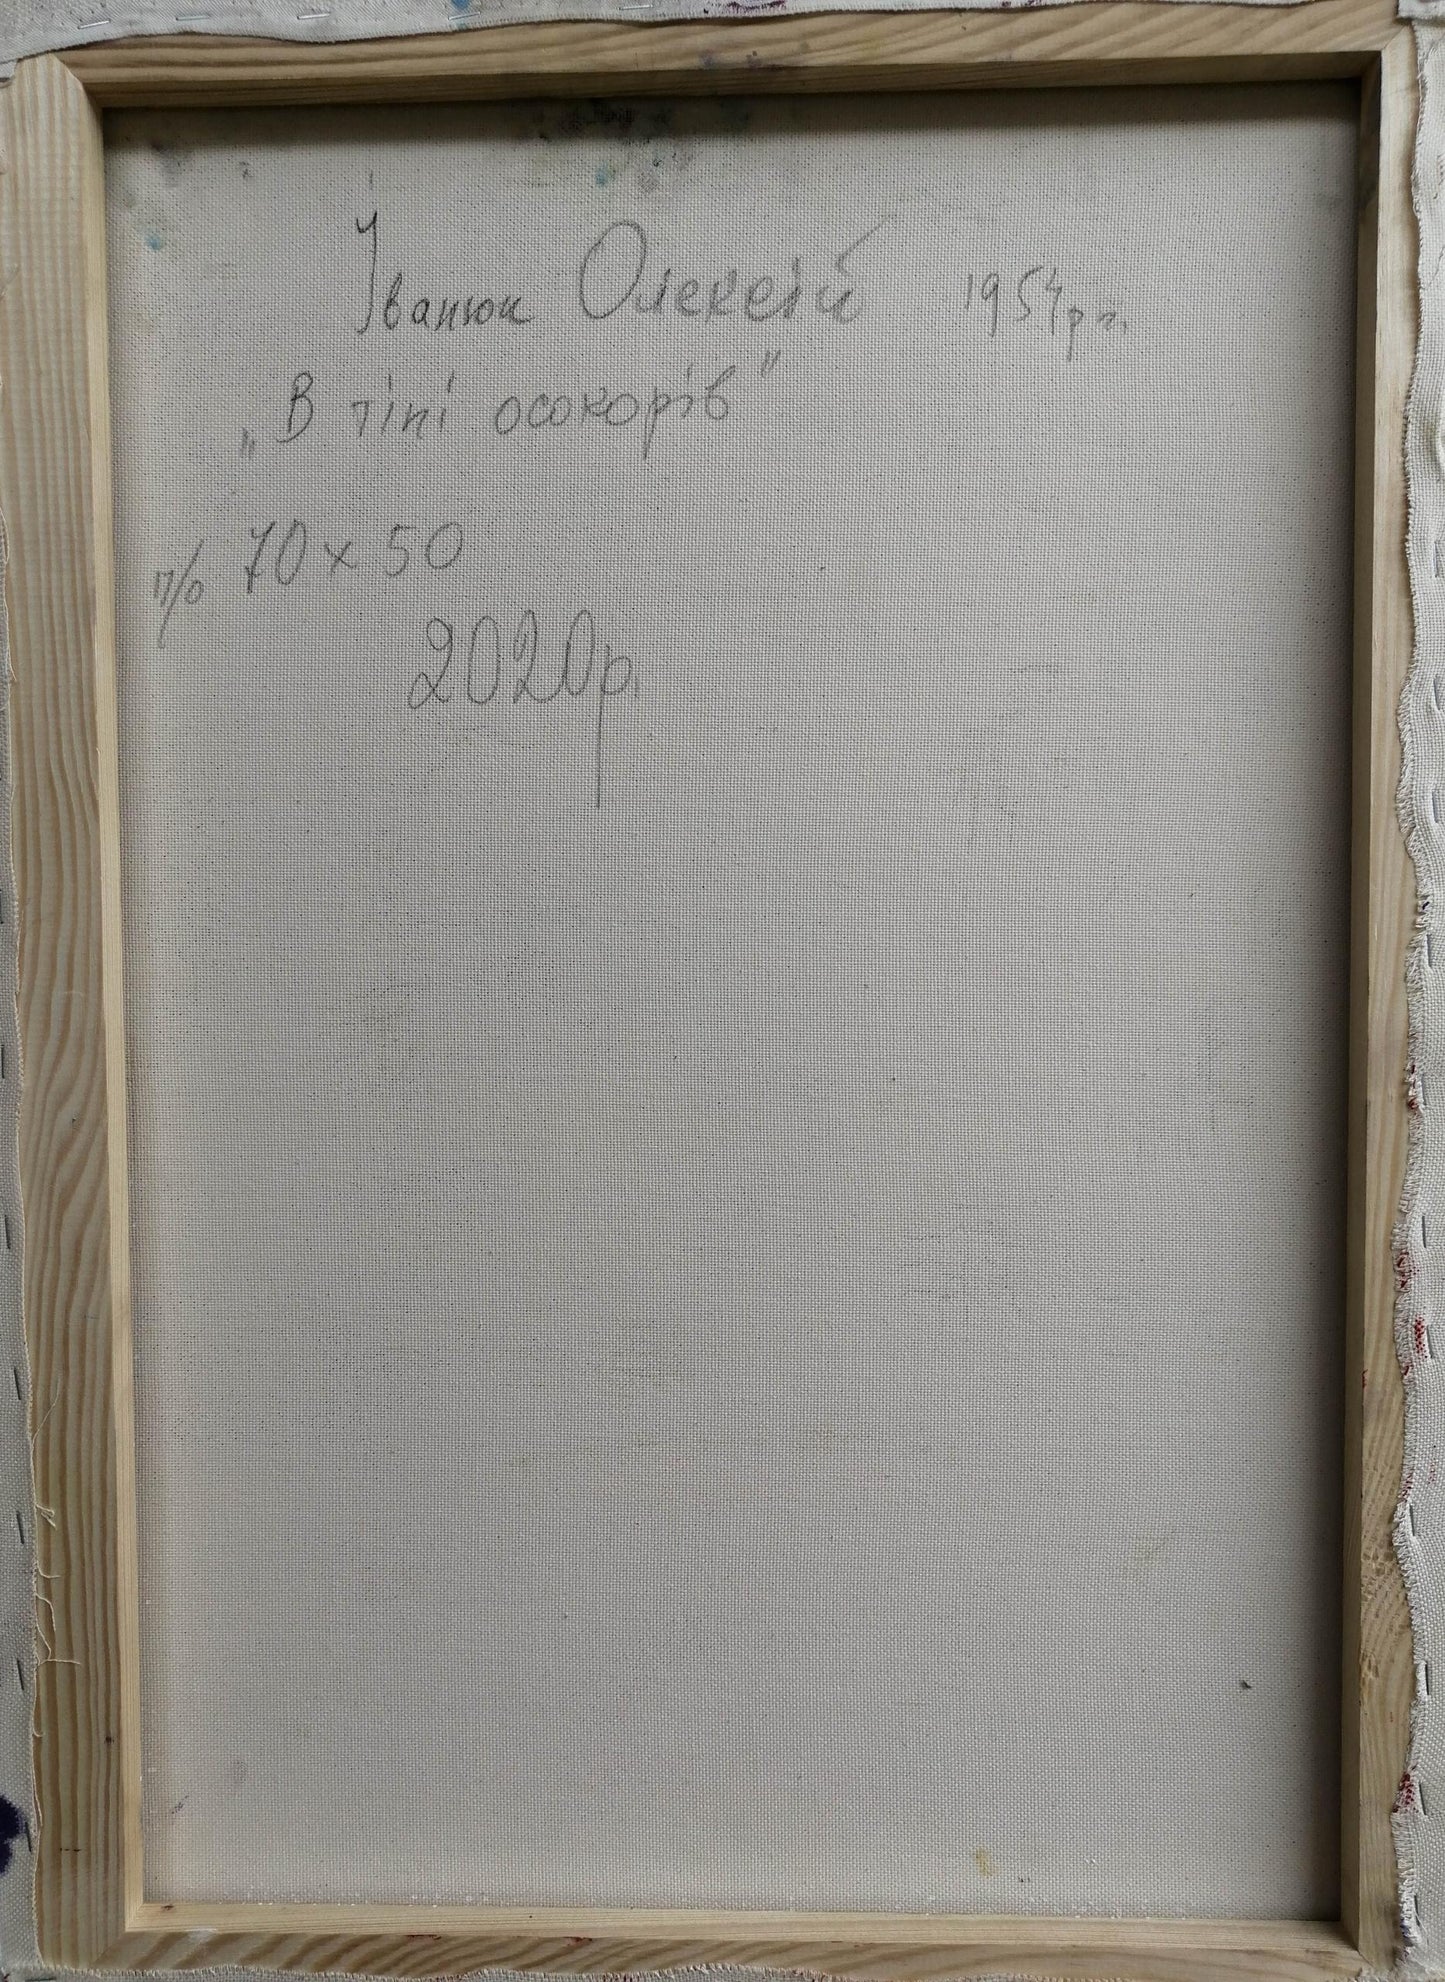 Іванюк Олексій 1954 р н.
„В тіні осокорів"
п/о 70 х 50
2020р.